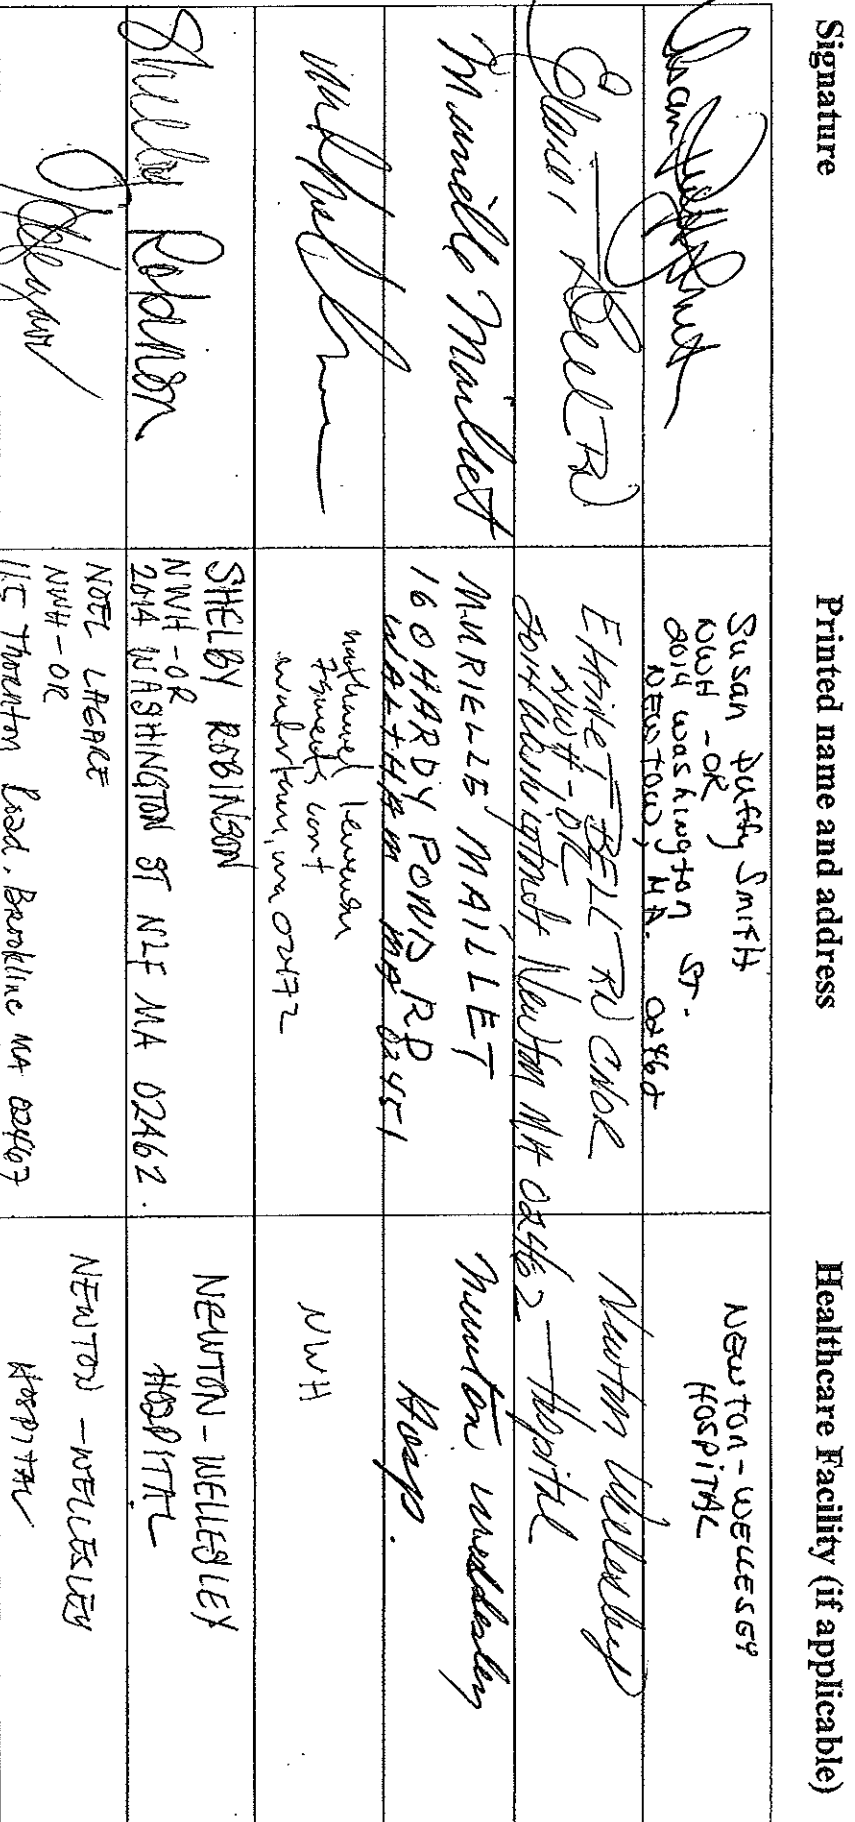 Signature Printed name and address Healthcare Facility (if applicable)
Susan Duffy Smith
NWH - OR
2014 Washington ST.
NEWTON, MA. 02462
NEWTON - WELLESEY
HOSPITAL
BELL RN CNOR
NWH - OR
2014 Washington St Newton MA 02462
Newton Wellesley
Hospital
Murielle Maillet
MURIELLE MAILLET
160 HARDY POND RD
WALTHAM MA 02451
Newton Wellesley
Hosp.
watertown, ma 02472
NWH
Shelby Robinson
SHELBY ROBINSON
NWH - OR
2014 WASHINGTON ST NLF MA 02462.
NEWTON - WELLESLEY
HOSPITAL
NOEL LAGARE
NWH - OR
115 Thornton Road. Brookline MA 02467
NEWTON - WELLESLEY
HOSPITAL